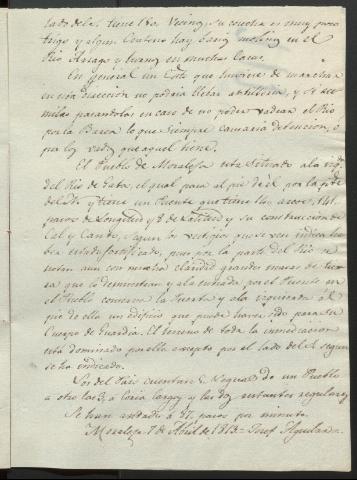 lado del S. tiene 150. Vecinos, su cosecha es muy poco
trigo y algun Centeno hay barios molinos en el
Rio Arrago y huanos en muchas Casas.
En general un Cuerpo que hubiere de marchar
en esta direccion no podria llebar artilleria, y si ace-
milas pasandolas en caso de no poder vadear el Rio
por la Barca lo que siempre causaria detencion, o
por los vados que aquel tiene.
El Pueblo de Moraleja esta situado a la
del Rio de Gata, el qual pasa al pie de el por la pte
del y tiene un Puente que tiene arcos, 141.
pasos de Longitud y 8 de Latitud y su construccion de
Cal y Canto, segun los vestigios que se ven indica
estado fortificado, pues por la parte del Rio se
notan aun con mucha claridad grandes masas de tier-
ra que lo demuestran y a la entrada por el Puente en
el Pueblo conserva la Puerta y a la izquierda al
pie de ella un edificio que puede haver sido para un
Cuerpo de Guardia. El terreno de toda la inmediacion
está dominado por ella excepto por el lado del S. segun
se ha indicado.
Los del Pais cuentan Leguas de un Pueblo
a otro las 3, a Coria largas y las dos restantes regulares
Se han andado a 77. pasos por minuto.
Moraleja 7 de Abril de 1813 = Josef Aguilar =